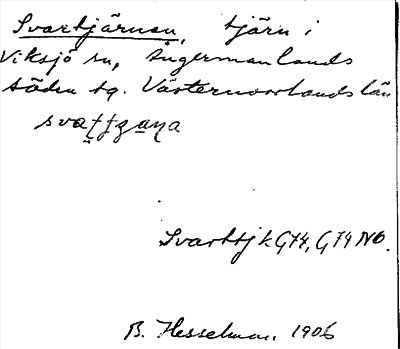 Svartjärnen, tjärn i
Viksjö sn, Ångermanlands
södra tg. Västernorrlands län
Svarttjk G74, G74 NO.
B. Hesselman. 1906